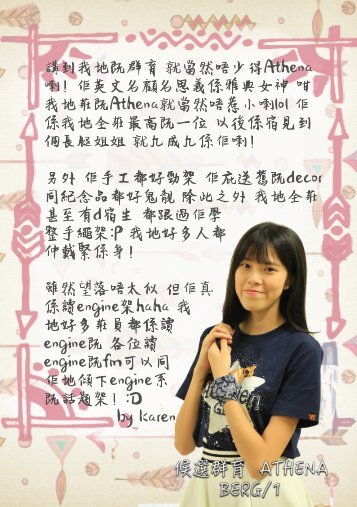 講到我地既群育 就當然唔少得Athena
喇! 佢英文名顧名思義係雅典女神 咁
我地班既Athena就當然唔惹小喇lol 佢
係我地全班最高既一位 以後係宿見到
個長腿姐姐 就九成九係佢喇!
另外 佢手工都好勁架 佢庇送舊既decor
同紀念品都好鬼靚 除此之外 我地全班
甚至有d宿生 都跟過佢學
整手繩架:P 我地好多人都
仲戴緊係身!
雖然望落唔太似 但佢真
係讀engine架haha 我
地好多班員都係讀
engine既 各位讀
engine既fm可以同
佢地傾下engine系
既話題架! :D
by Karen
候選群育 ATHENA
BERG/1